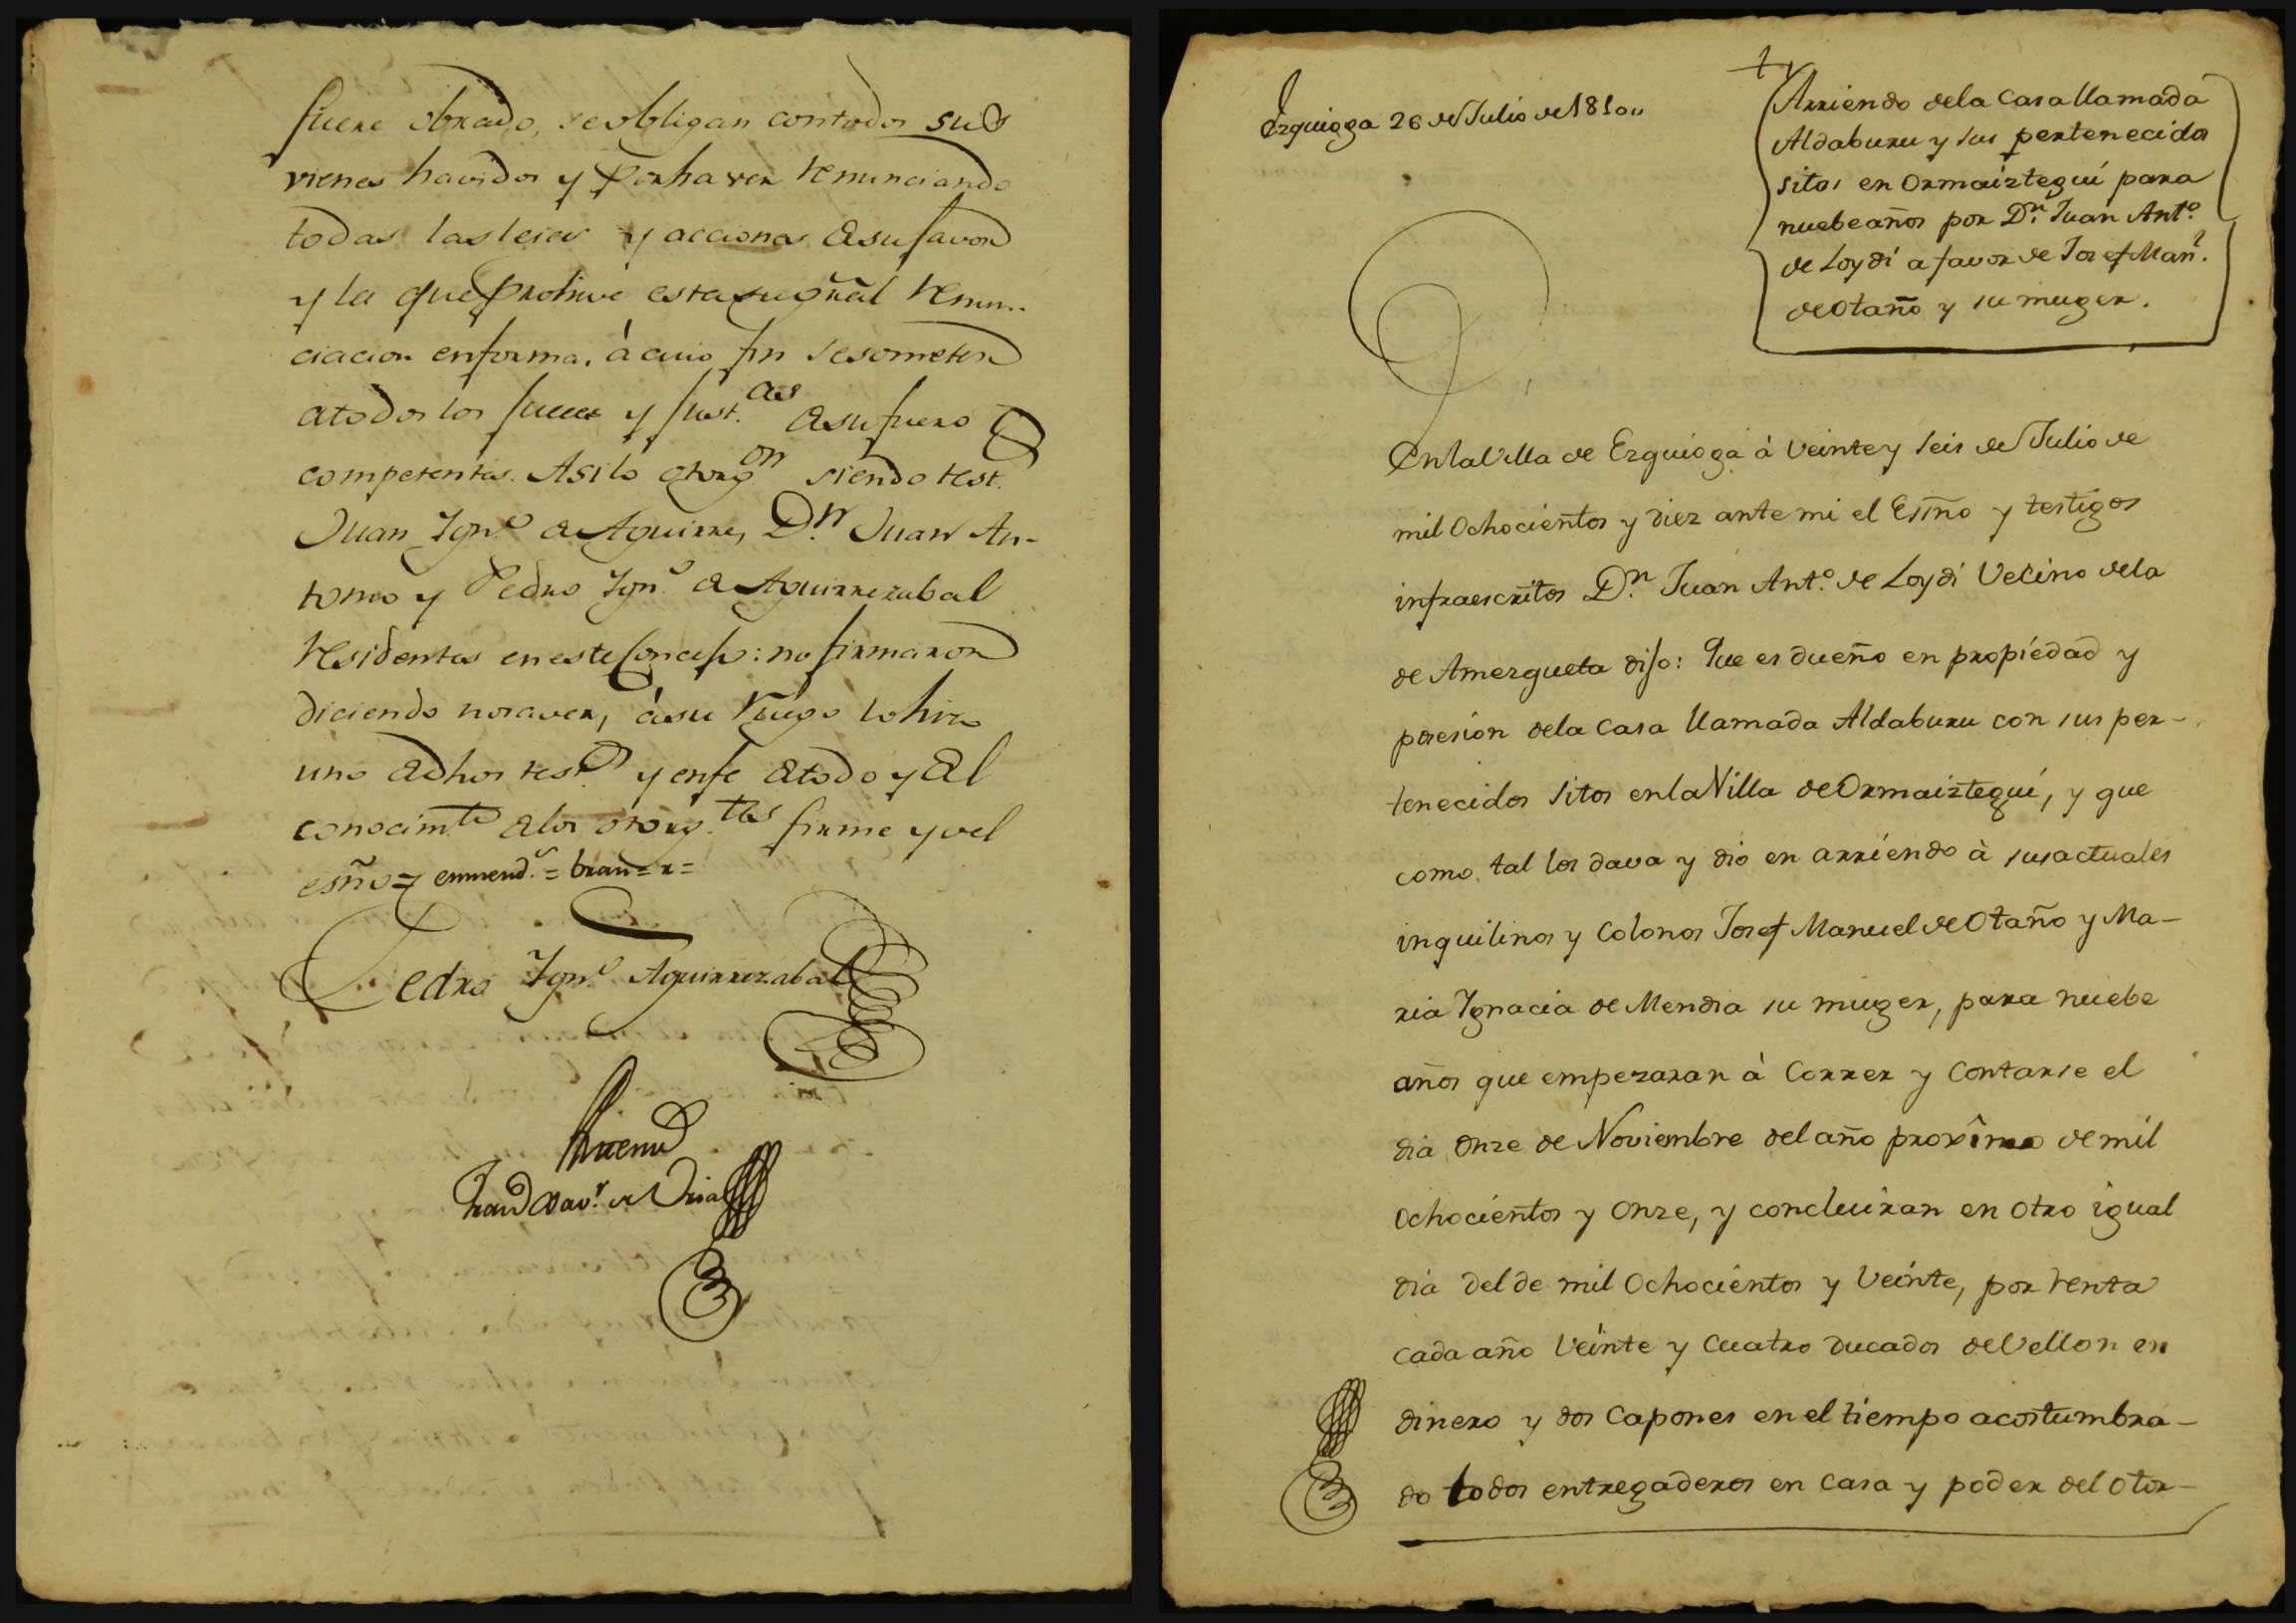 fuere obrado, se obligan con todos sus
vienes havidos y por haver renunciando
todas las leies y acciones a su favor
y la que prohive esta su gñral renun-
ciacion en forma, à cuio fin se someten
a todos los Jueces y Just.as a su fuero
competentes. Asi lo otorg.on siendo test.
Juan Ygn.o de Aguirre, D.n Juan An-
tonio y Pedro Ygn.o de Aguirrezabal
residentes en este Concejo: no firmaron
diciendo no saver, à su ruego lo hizo
uno de dhos test.s y en fe de todo y del
conocim.to de los otorg.tes firme yo el
esño = enmend.o = bran = r =
Pedro Ygn.o Aguirrezabal
Antemi
Fran.co Xav.r de Oria
Ezquioga 26 de Julio de 1810,,
Arriendo dela Casa llamada
Aldaburu y sus pertenecidos
sitos en Ormaiztegui para
nuebe años por D.n Juan Ant.o
de Loydi a favor de Josef Man.l
de Otaño y su muger.
En la Villa de Ezquioga à veinte y seis de Julio de
mil Ochocientos y diez ante mi el Esño y testigos
infraescritos D.n Juan Ant.o de Loydi Vecino dela
de Amezqueta dijo: Que es dueño en propiedad y
posesion dela Casa llamada Aldaburu con sus per-
tenecidos sitos en la Villa de Ormaiztegui, y que
como tal los dava y dió en arriendo à sus actuales
inquilinos y Colonos Josef Manuel de Otaño y Ma-
ria Ygnacia de Mendia su muger, para nuebe
años que empezaran à Correr y Contarse el
dia Onze de Noviembre del año proximo de mil
Ochocientos y Onze, y concluiran en otro igual
dia del de mil Ochocientos y Veinte, por renta
cada año Veinte y Cuatro Ducados de Vellon en
dinero y dos Capones en el tiempo acostumbra-
do todos entregaderos en Casa y poder del Otor-